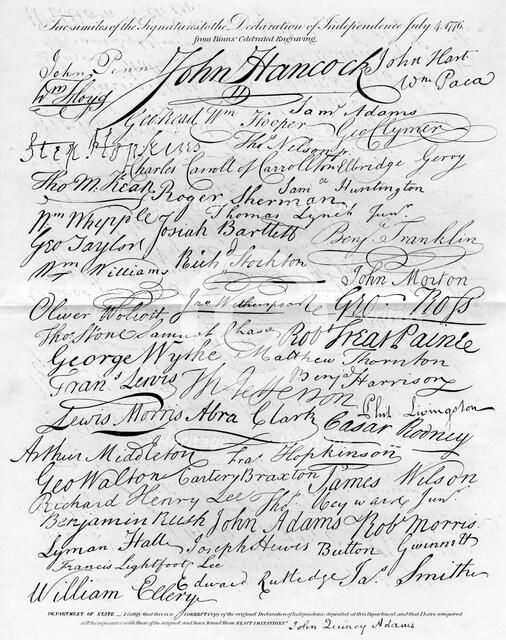 Facsimiles of the Signatures to the Declaration of Independence July 4. 1776.
from Binns' Celebrated Engraving.
John Penn John Hancock John Hart
Wm Floyd Wm Paca
Geo Read Wm Hooper Saml Adams
Step Hopkins Thos Nelson jr. Geo Clymer
Charles Carroll of Carrollton Elbridge Gerry
Tho M.Kean Roger Sherman Saml Huntington
Wm Whipple Thomas Lynch Junr.
Geo Taylor Josiah Bartlett Benja Franklin
Wm Williams Richd Stockton John Morton
Oliver Wolcott Jno Witherspoon Geo. Ross
Thos Stone Samuel Chase Robt Treat Paine
George Wythe Matthew Thornton
Frans Lewis Th Jefferson Benja Harrison
Lewis Morris Abra Clark Phil. Livingston
Cæsar Rodney
Arthur Middleton Fras Hopkinson
Geo Walton Carter Braxton James Wilson
Richard Henry Lee Thos Heyward Junr.
Benjamin Rush John Adams Robt Morris
Lyman Hall Joseph Hewes Button Gwinnett
Francis Lightfoot Lee
William Ellery Edward Rutledge Jas. Smith
DEPARTMENT OF STATE _ I certify that this is a CORRECT Copy of the original Declaration of Independence, deposited at this Department, and that I have compared
all the signatures with those of the original and have found them EXACT IMITATIONS" John Quincy Adams